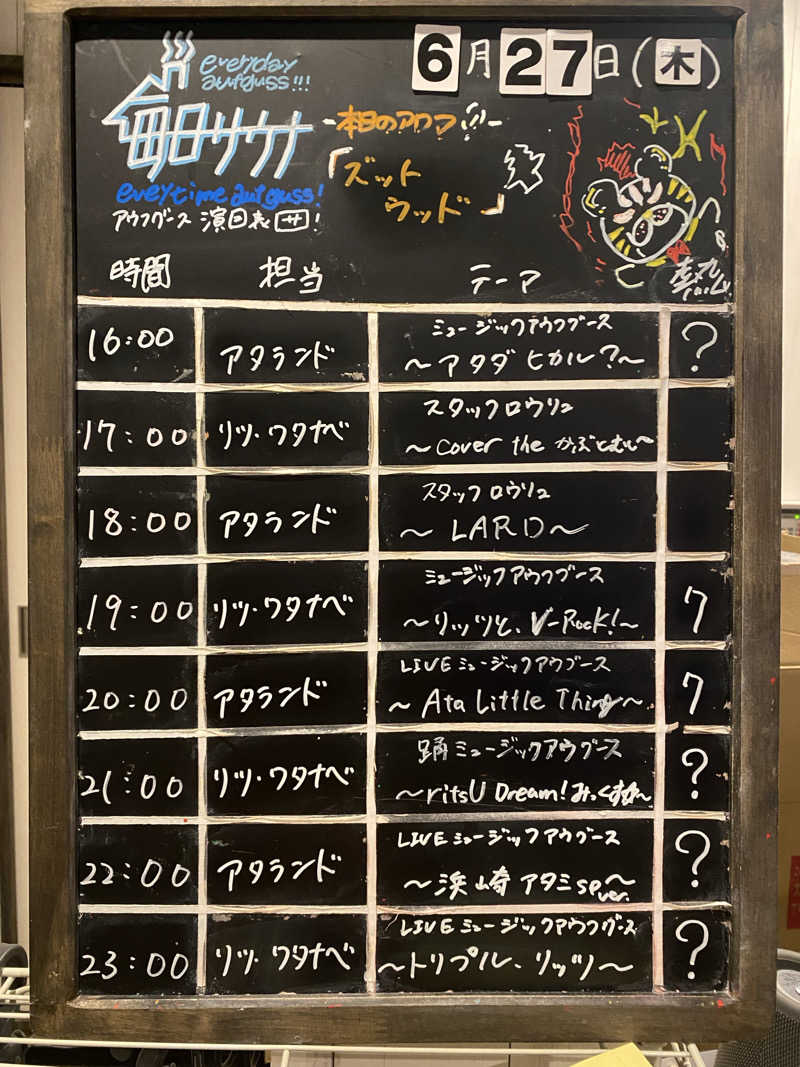 everyday
aufguss!!!
6月27日(木)
毎日サウナ
-本日のアウフ!!-
「ズット
ウッド」
everytime aufguss!
アウフグース 演目表 サ!
時間 担当 テーマ 熱
16:00 アタランド ミュージックアウフグース ?
～アタダ ヒカル?～
17:00 リツ・ワタナベ スタッフロウリュ
～cover the かぶとむし～
18:00 アタランド スタッフロウリュ
～LARD～
19:00 リツ・ワタナベ ミュージックアウフグース 7
～リッツと、V-Rock!～
20:00 アタランド LIVEミュージックアウフグース 7
～Ata Little Thing～
21:00 リツ・ワタナベ 踊ミュージックアウフグース ?
～ritsU Dream!みっくすか～
22:00 アタランド LIVEミュージックアウフグース ?
～浜崎アタミsp ver.～
23:00 リツ・ワタナベ LIVEミュージックアウフグース ?
～トリプル、リッツ～